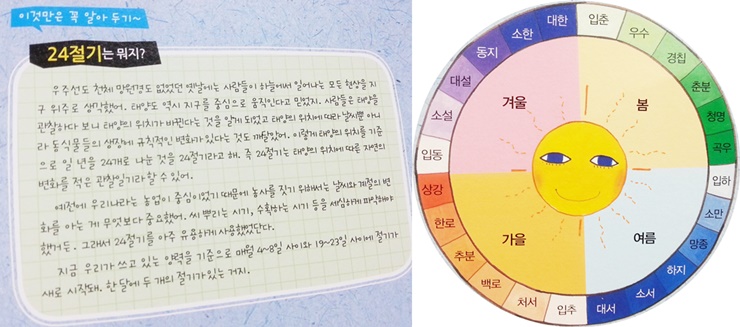 이것만은 꼭 알아 두기~
24절기는 뭐지?
우주선도 천체 망원경도 없었던 옛날에는 사람들이 하늘에서 일어나는 모든 현상을 지
구 위주로 생각했어. 태양도 역시 지구를 중심으로 움직인다고 믿었지. 사람들은 태양을
관찰하다 보니 태양의 위치가 바뀐다는 것을 알게 되었고 태양의 위치에 따라 날씨뿐 아니
라 동식물들의 생장에 규칙적인 변화가 있다는 것도 깨달았어. 이렇게 태양의 위치를 기준
으로 일 년을 24개로 나눈 것을 24절기라고 해. 즉 24절기는 태양의 위치에 따른 자연의
변화를 적은 관찰일기라 할 수 있어.
예전에 우리나라는 농업이 중심이었기 때문에 농사를 짓기 위해서는 날씨와 계절의 변
화를 아는 게 무엇보다 중요했어. 씨 뿌리는 시기, 수확하는 시기 등을 세심하게 파악해야
했거든. 그래서 24절기를 아주 유용하게 사용했었단다.
지금 우리가 쓰고 있는 양력을 기준으로 매월 4~8일 사이와 19~23일 사이에 절기가
새로 시작돼. 한 달에 두 개의 절기가 있는 거지.
입춘
우수
경칩
춘분
청명
곡우
입하
소만
망종
하지
소서
대서
입추
처서
백로
추분
한로
상강
입동
소설
대설
동지
소한
대한
겨울
봄
가을
여름